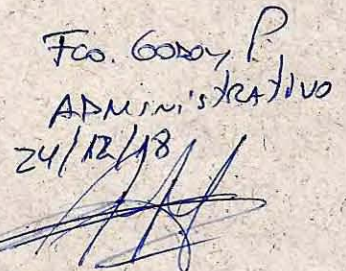 Fco. GODOY P.
ADMINISTRATIVO
24/12/18